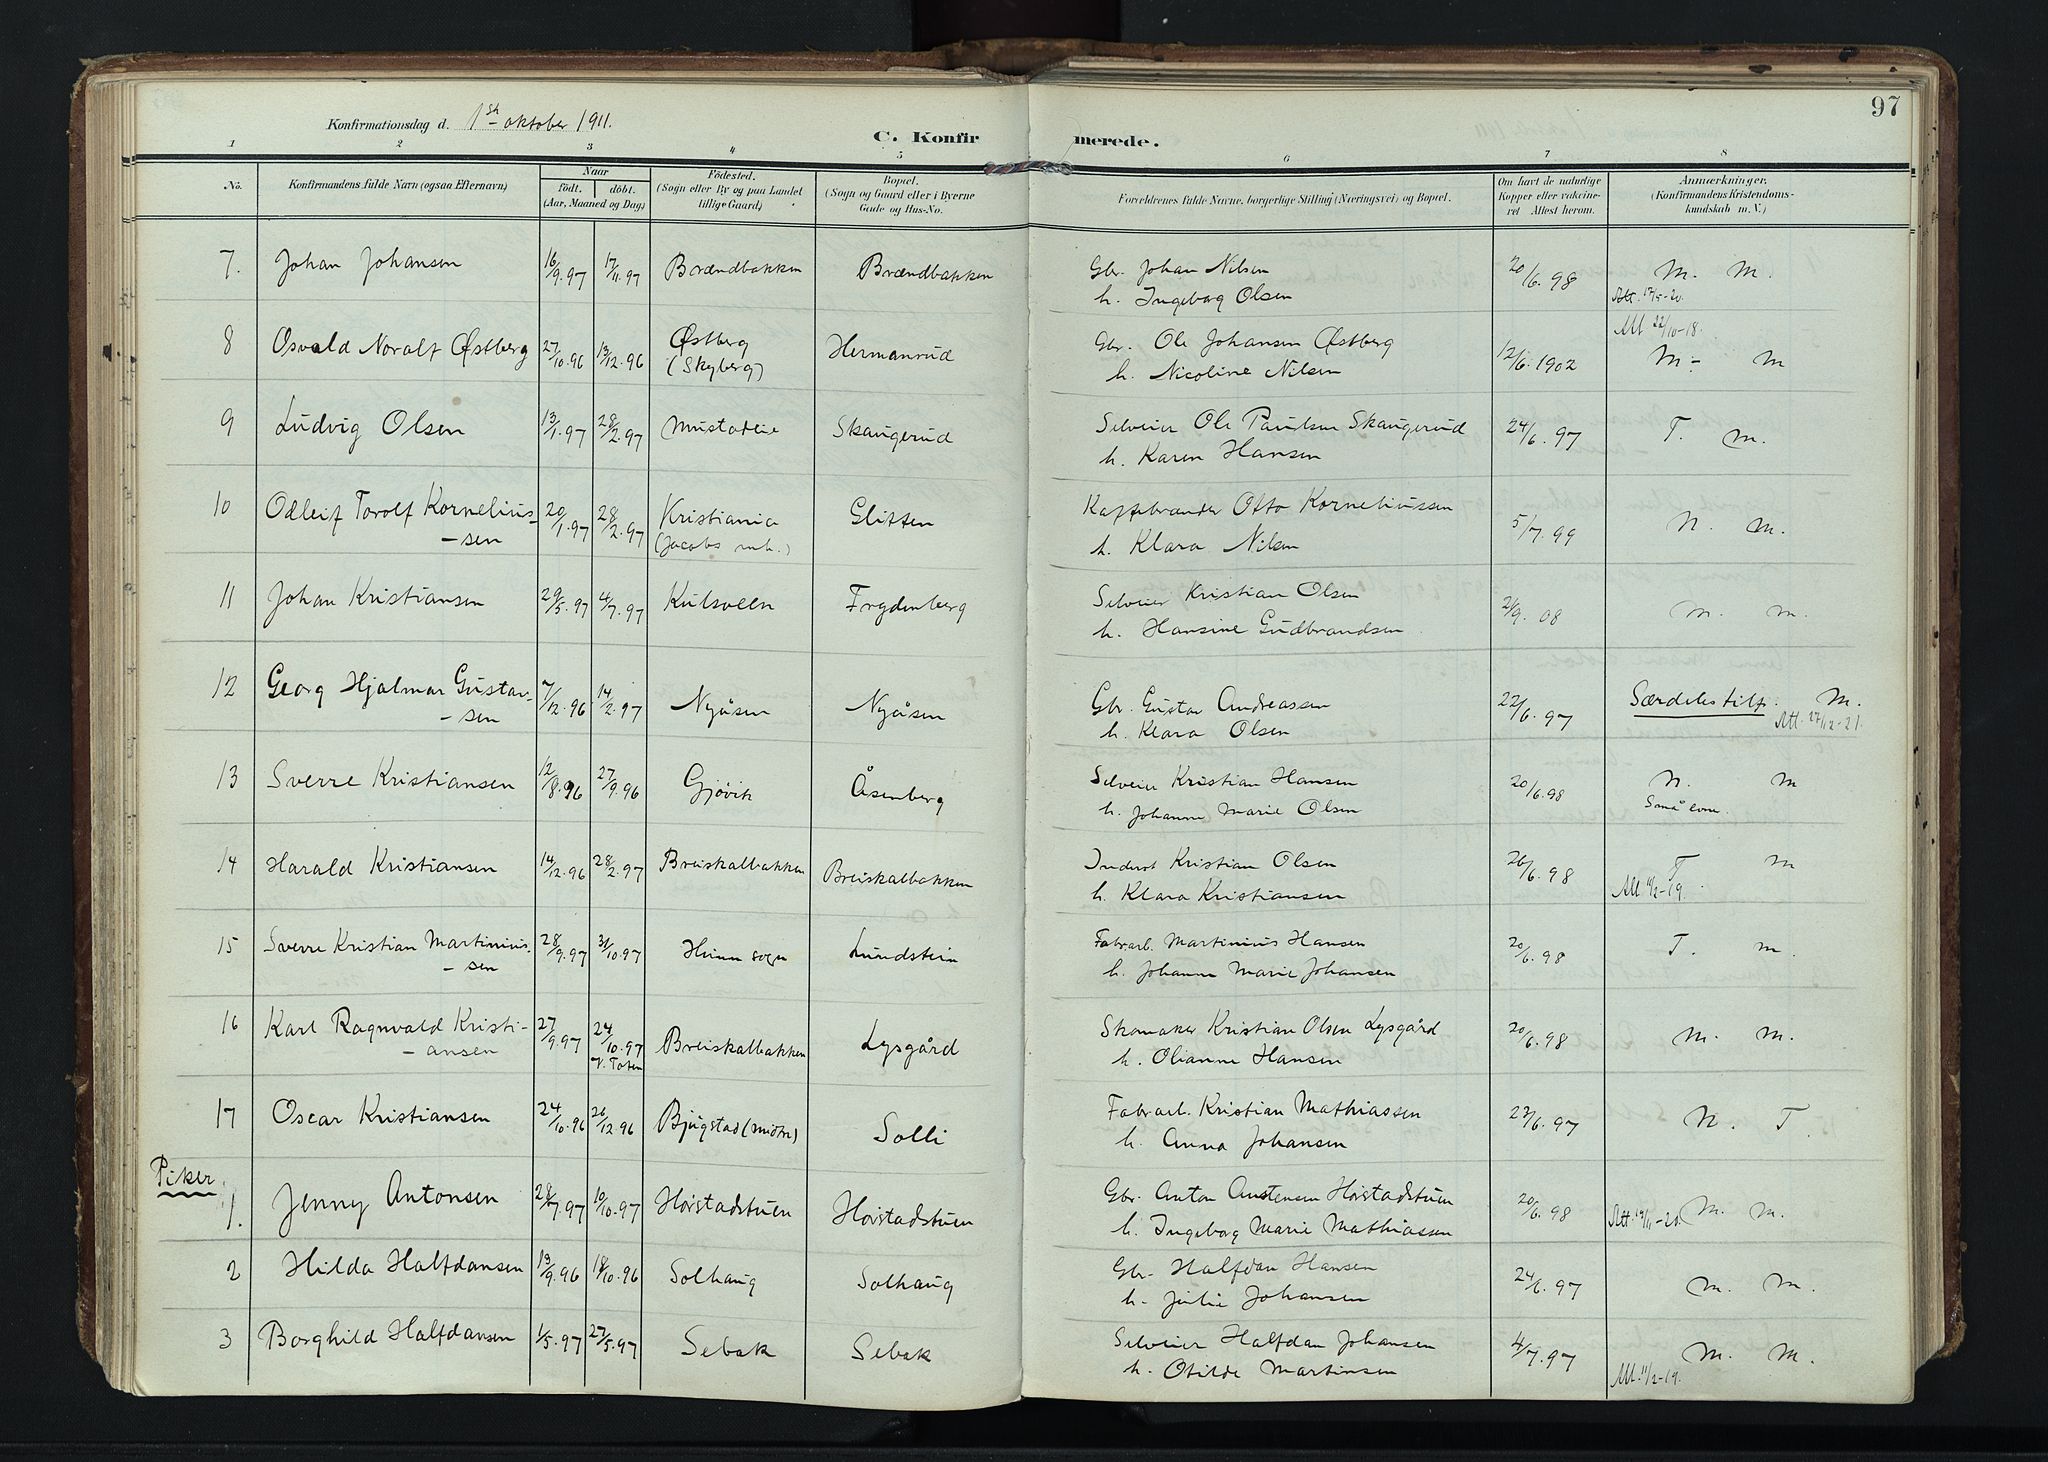 97
Konfirmationsdag d. 1ste oktober 1911.
C. Konfirmerede.
1 2 3 4 5 6 7 8
No.
Konfirmandens fulde Navn (ogsaa Efternavn)
Naar
födt. döbt.
(Aar, Maaned og Dag)
Födested.
(Sogn eller By og paa Landet
tillige Gaard)
Bopæl.
(Sogn og Gaard eller i Byerne
Gade og Hus-No.
Forældrenes fulde Navne, borgerlige Stilling (Næringsvei) og Bopæl.
Om havt de naturlige
Kopper eller vakcine-
ret Attest herom.
Anmærkninger.
(Konfirmandens Kristendoms-
kundskab m. V.)
7. Johan Johansen 16/9.97 17/11.97 Brændbakken Brændbakken Gbr. Johan Nilsen 20/6.98 M. M.
h. Ingeborg Olsen Att. 12/5-20.
Att 22/10-18.
8 Osvald Noralf Østberg 27/10.96 13/12.96 Østberg (Skyberg) Hermanrud Gbr. Ole Johansen Østberg 12/6.1902 M.- M
h. Nicoline Nilsen
9 Ludvig Olsen 13/1.97 28/2.97 Mustadeie Skaugerud Selveier Ole Paulsen Skaugerud 24/6.97 T. M.
h. Karen Hansen
10 Odleif Torolf Kornelius- 20/1.97 28/2.97 Kristiania Glitten Kaffebrænder Otto Korneliussen 5/7.99 N. M.
-sen (Jacobs mh.) h. Klara Nilsen
11 Johan Kristiansen 29/5.97 4/7.97 Kulsveen Frydenberg Selveier Kristian Olsen 2/9.08 M. M.
h. Hansine Gudbrandsen
12 Georg Hjalmar Gustav- 7/12.96 14/2.97 Nyåsen Nyåsen Gbr. Gustav Andreassen 22/6.97 Særdeles tilf. M.
-sen h. Klara Olsen Att. 27/12-21.
13 Sverre Kristiansen 12/8.96 27/9.96 Gjøvik Åsenberg Selveier Kristian Hansen 20/6.98 N. M
h. Johanne Marie Olsen Små evne.
14 Harald Kristiansen 14/12.96 28/2.97 Breiskalbakken Breiskalbakken Inderst Kristian Olsen 26/6.98 T. M
h. Klara Kristiansen Att 11/2-19.
15 Sverre Kristian Martinius- 28/9.97 31/10.97 Hunn sogn Lundstein Fabrarb. Martinius Hansen 20/6.98 T. M.
-sen h. Johanne Marie Johansen
16 Karl Ragnvald Kristi- 27/9.97 24/10.97 Breiskalbakken Lysgård Skomaker Kristian Olsen Lysgård 20/6.98 M. M.
-ansen V. Toten h. Olianne Hansen
17 Oscar Kristiansen 24/10.96 26/12.96 Bjugstad (midtre) Solli Fabrarb. Kristian Mathiassen 23/6.97 N. T.
h. Anna Johansen
Piker.
1. Jenny Antonsen 28/7.97 10/10.97 Hørstadstuen Hørstadstuen Gbr. Anton Austensen Hørstadstuen 20/6.98 M. M.
h. Ingeborg Marie Mathiassen Att. 19/11-20.
2 Hilda Halfdansen 13/9.96 18/10.96 Solhaug Solhaug Gbr. Halfdan Hansen 24/6.97 M. M.
h. Julie Johansen
3 Borghild Halfdansen 1/5.97 27/5.97 Sebak Sebak Selveier Halfdan Johansen 4/7.97 M. M.
h. Otilde Martinsen Att. 11/2-19.